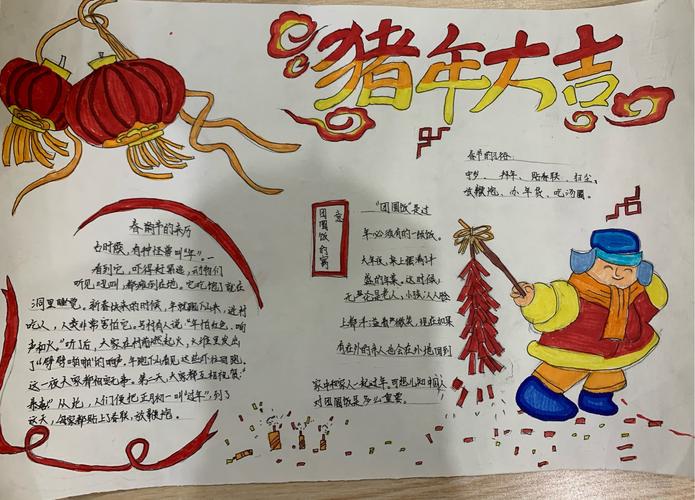 猪年大吉
春节的习俗:
守岁、拜年、贴春联、扫尘、
放鞭炮、办年货、吃汤圆。
春节的来历
古时候,有种怪兽叫"年"。一
看到它,吓得
听见吼叫,都瘫倒在地。它吃饱就在
洞里睡觉。新春快来的时候,年就跑下山来,进村
吃人,人类非常害怕它。有村有人说"年怕红色、响
声和火"听后,大家在村前燃起火,火堆里发出
了"劈劈啪啪"的响声。年跑下山看见这些外往回跑。
这一夜大家都相安无事。第二天,大家都互相祝贺:
恭喜!"从此,人们便把正月初一叫"过年",到了
这天,每家都贴上了春联,放鞭炮。
团圆饭的寓
意
"团圆饭"是过
年必须有的一顿饭。
大年夜,桌上摆满丰
盛的年菜。这时候,
无论是老人,小孩,人人脸
上都洋溢着微笑,现在如果
有在外的亲人也会在外地回到
家中和家人一起过年。可想儿知中国人
对团圆饭是多么重要。